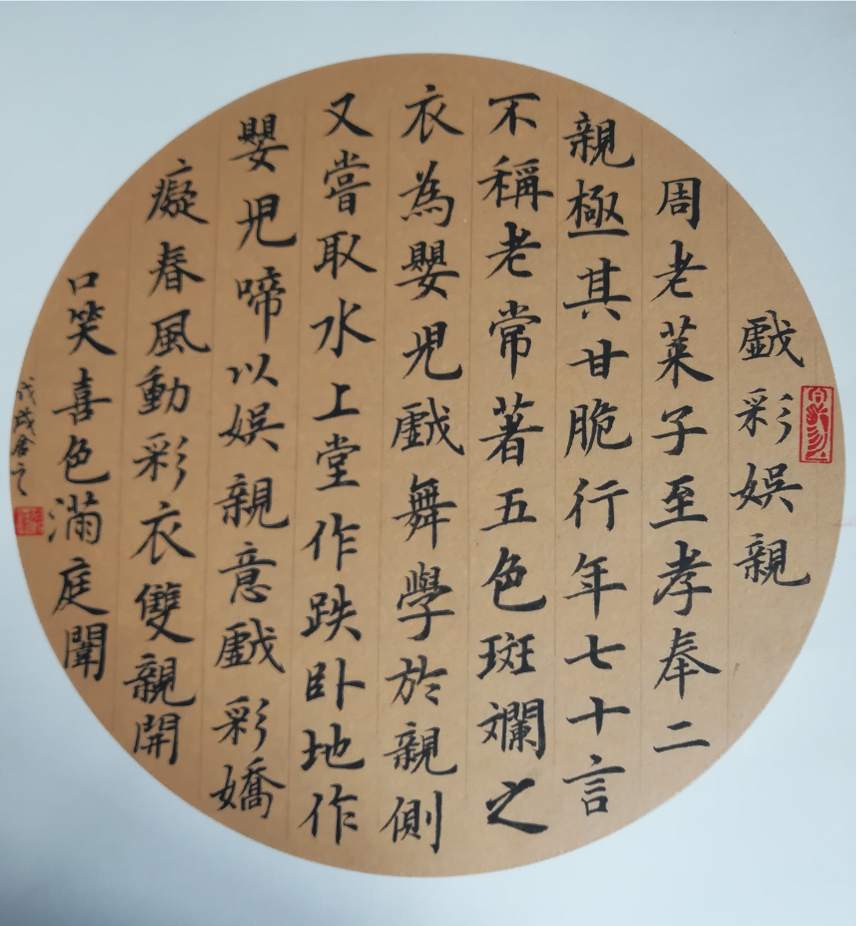 戲彩娛親
周老萊子至孝奉二
親極其甘脆行年七十言
不稱老常著五色斑斕之
衣為嬰児戲舞學於親側
又嘗取水上堂作跌卧地作
嬰児啼以娛親意戲彩嬌
癡春風動彩衣雙親開
口笑喜色滿庭闈